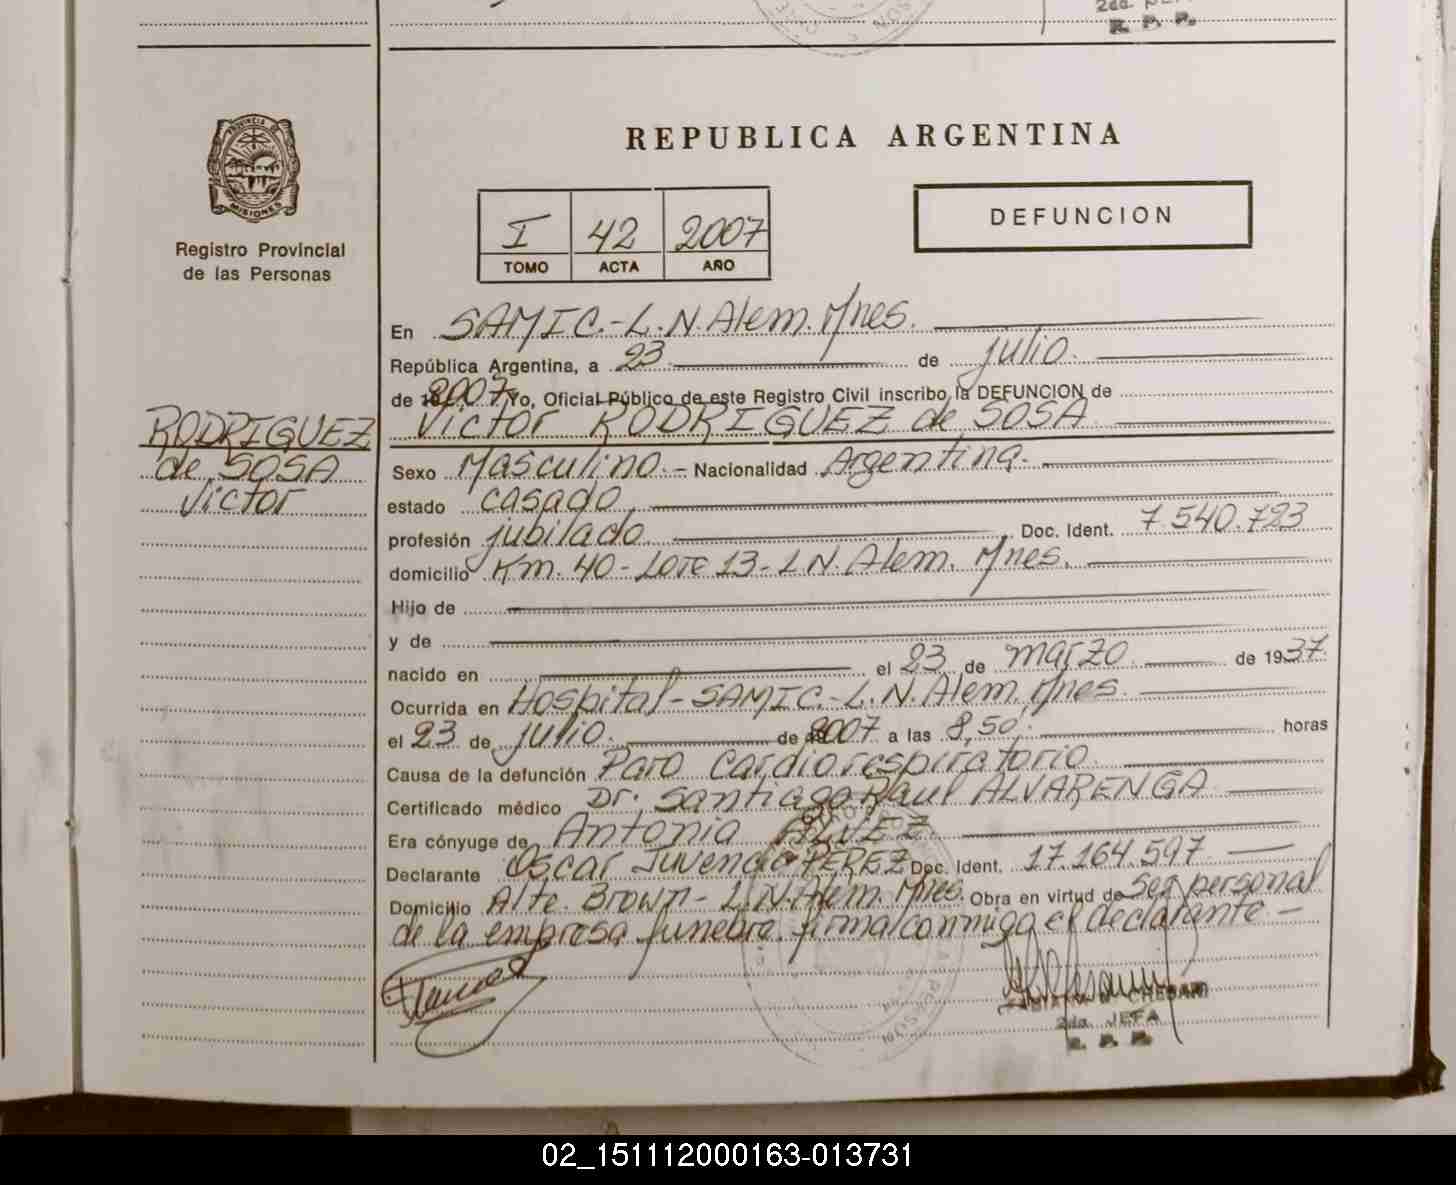 2da.
R. P. P.
PROVINCIA DE
MISIONES
Registro Provincial
de las Personas
REPUBLICA ARGENTINA
I 42 2007
TOMO ACTA AÑO
DEFUNCION
En SAMIC.-L.N.Alem.Mnes.
República Argentina, a 23 de julio.
de 2007. Yo, Oficial Público de este Registro Civil inscribo la DEFUNCION de
Victor RODRIGUEZ de SOSA
RODRIGUEZ
de SOSA
Victor
Sexo Masculino.- Nacionalidad Argentina.
estado casado
profesión jubilado Doc. Ident. 7.540.723
domicilio Km. 40-Lote 13-L N. Alem. Mnes.
Hijo de
y de
nacido en el 23 de marzo. de 1937.
Ocurrida en Hospital-SAMIC.-L.N.Alem.Mnes.
el 23 de julio. de 2007 a las 8,50. horas
Causa de la defunción Paro Cardiorespiratorio.
Certificado médico Dr. Santiago Raul ALVARENGA
Era cónyuge de Antonia ALVEZ.
Declarante Oscar Juvencio PEREZ Doc. Ident. 17.164.597
Domicilio Alte. Brown- L.N.Alem.Mnes. Obra en virtud de ser personal
de la empresa funebre. firma conmigo el declarante -
2da. JEFA
R. P. P.
02_151112000163-013731